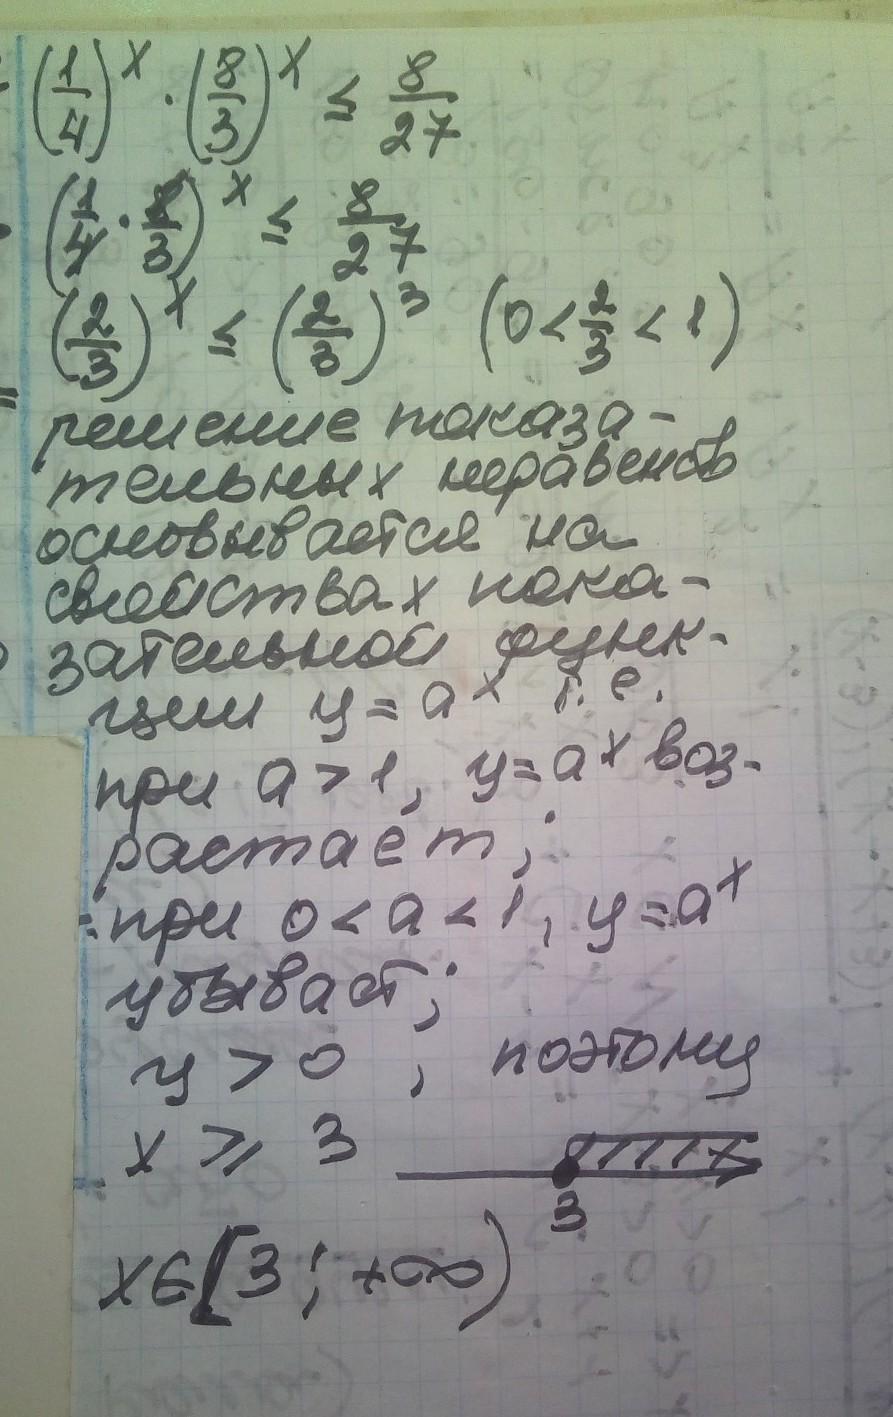 (1/4)^x · (8/3)^x ≤ 8/27
(1/4 · 8/3)^x ≤ 8/27
(2/3)^x ≤ (2/3)^3 (0 < 2/3 < 1)
решение показа-
тельных неравенств
основывается на
свойствах пока-
зательной функ-
ции y = a^x т. е.
при a > 1, y = a^x воз-
растает;
при 0 < a < 1, y = a^x
убывает;
y > 0, поэтому
x ≥ 3
3
x ∈ [3; +∞)